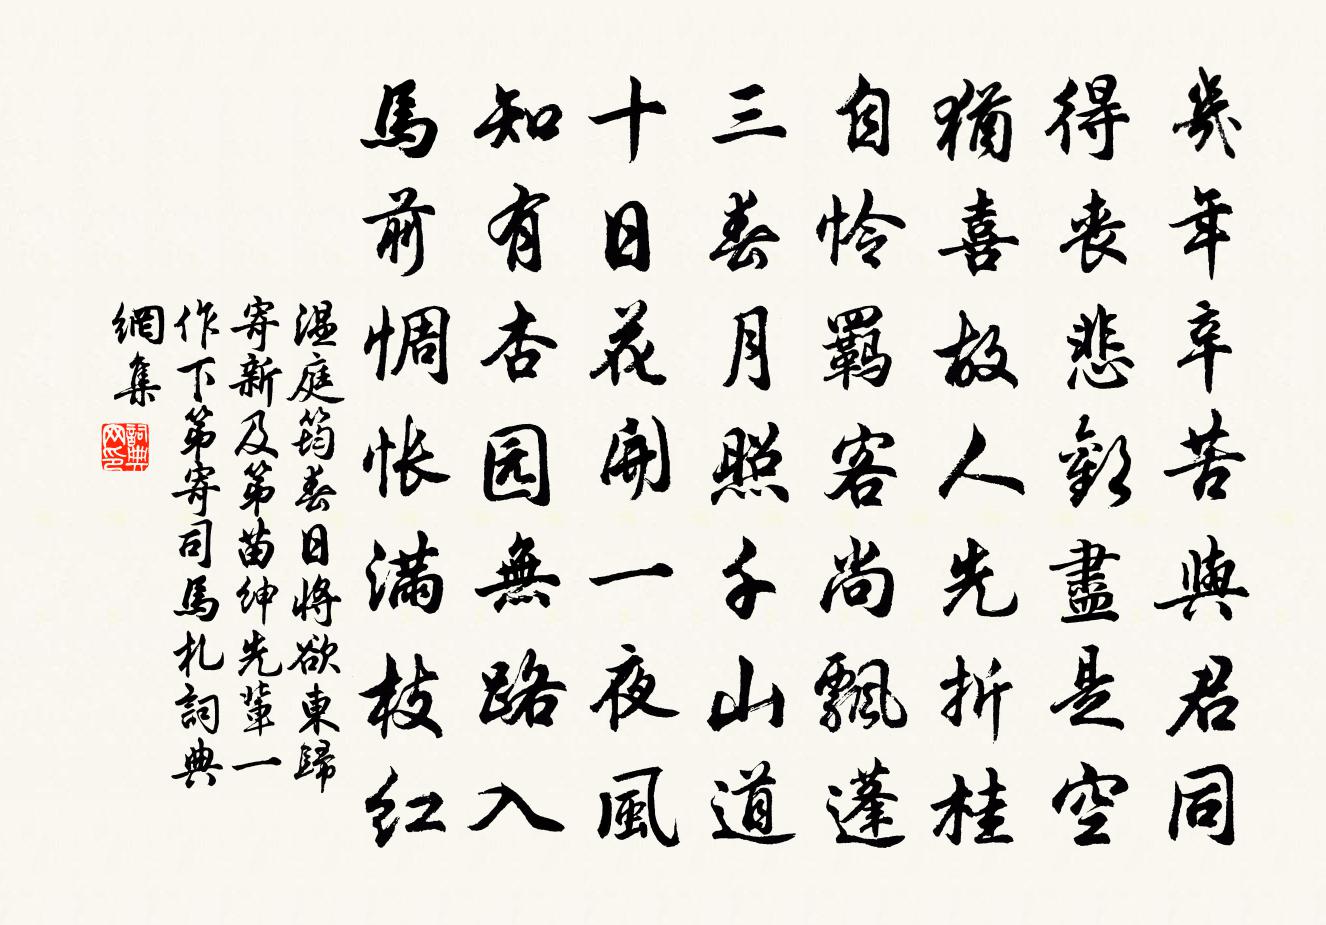 幾年辛苦與君同
得喪悲歡盡是空
猶喜故人先折桂
自怜羁客尚飄蓬
三春月照千山道
十日花開一夜風
知有杏园無路入
馬前惆怅滿枝红
温庭筠春日將欲東歸
寄新及第苗紳先輩一
作下第寄司馬札詞典
網集
詞典網印